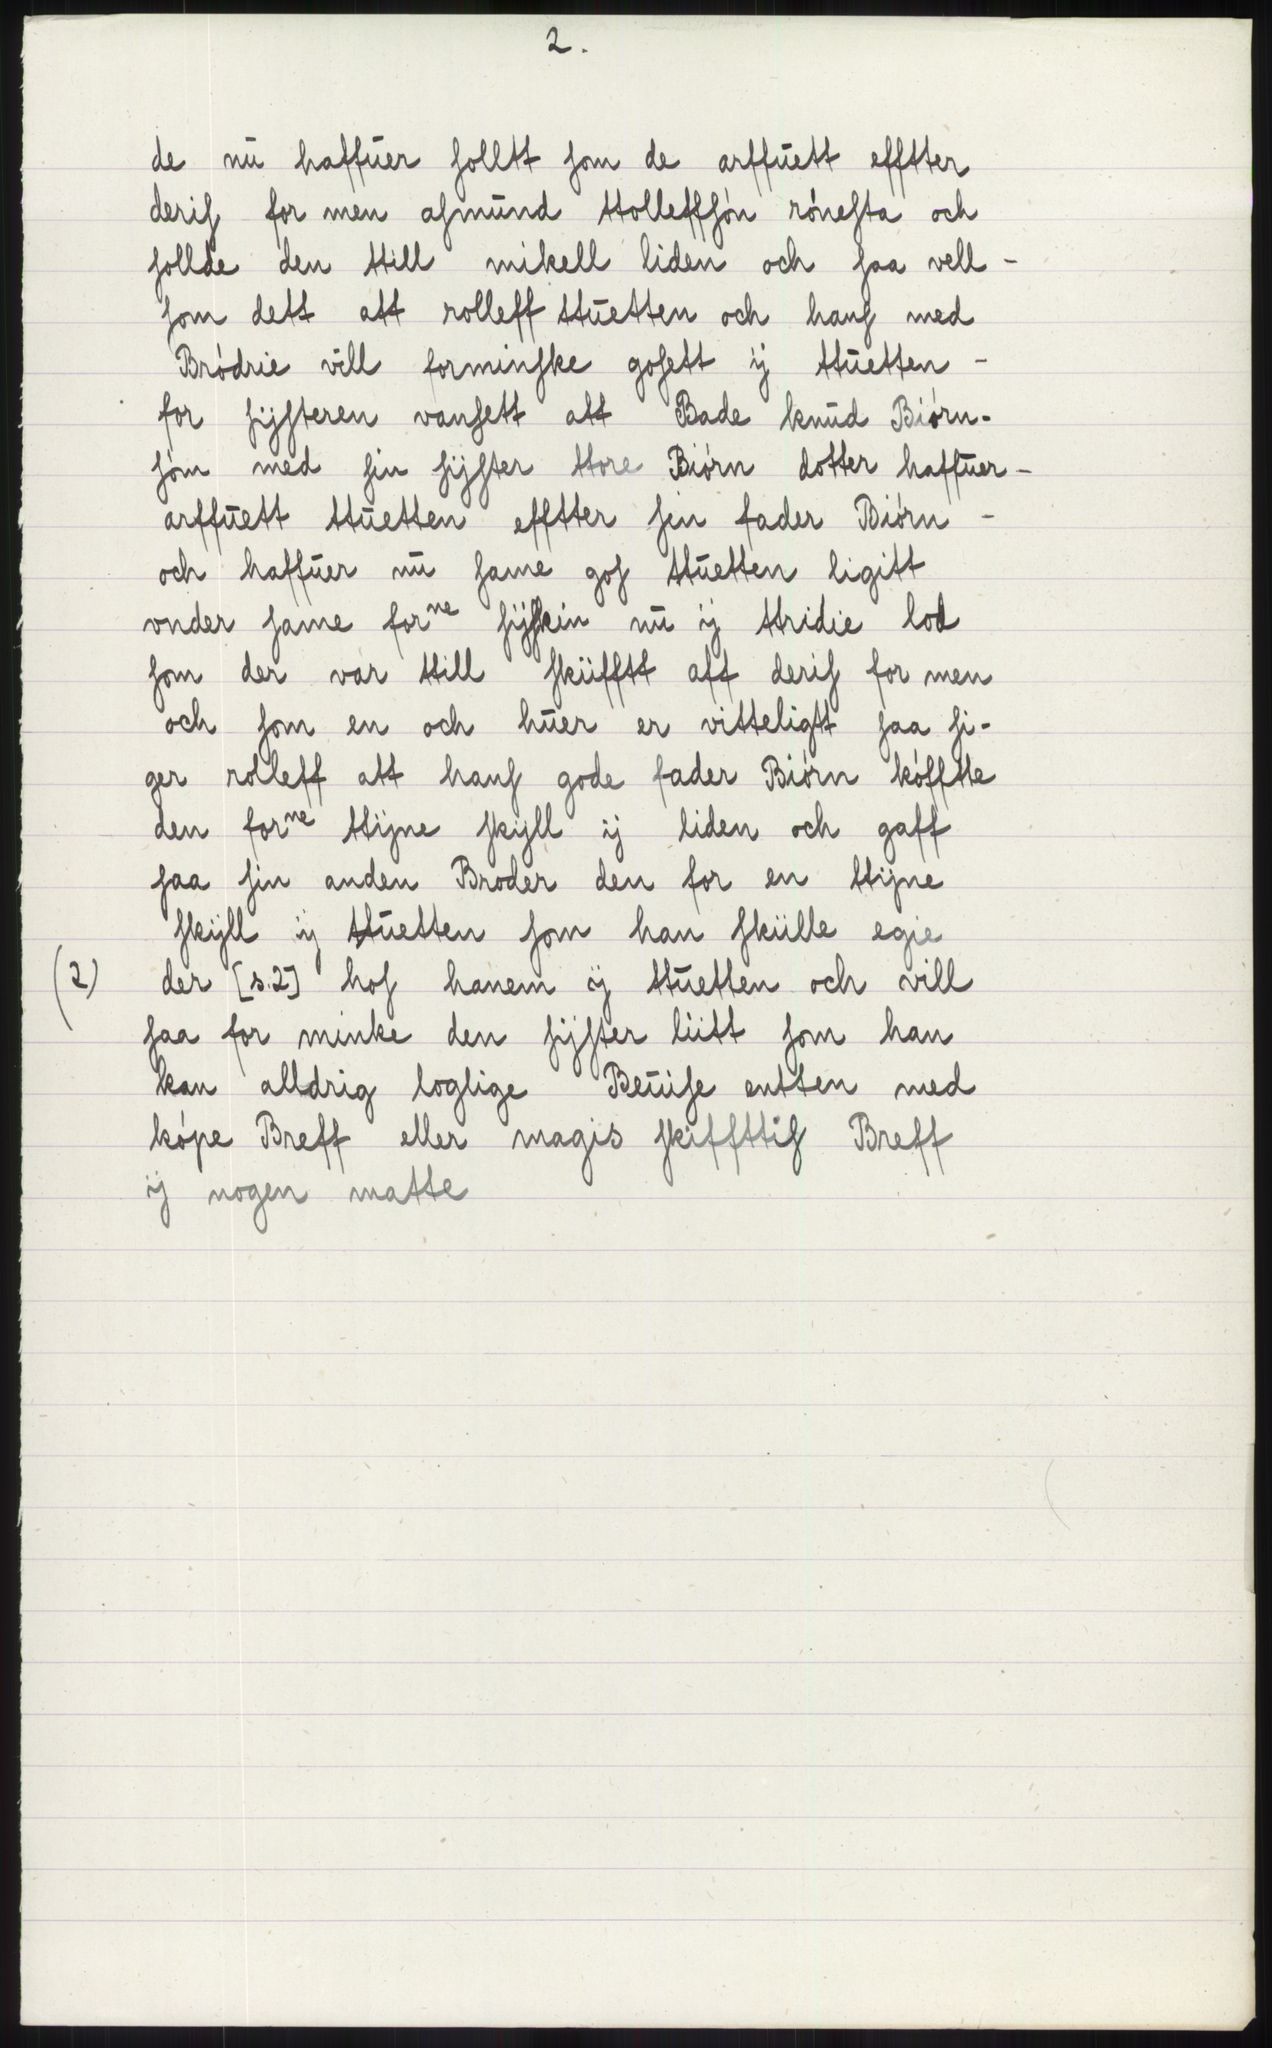 2.
de nū haffūer ſolltt ſom de arffūett efftter
deriſ for men aſmūnd ttolleffſón róneſta och
ſollde den ttill mikell liden och ſaa vell -
ſom dett att rolleff ttūetten och hanſ med
Bródrie vill forminſke goſett ÿ ttūetten -
for ſÿſteren vanſett att Bade knūd Biórn-
ſón med ſin ſÿſter ttore Biórn dotter haffūer -
arffūett ttūetten efftter ſin fader Biórn -
och haffūer nū ſame goſ ttūetten ligitt
vnder ſame forⁿᵉ ſÿſkin nū ÿ ttridie lod
ſom der var ttill ſküfftt aff deriſ for men
och ſom en och hūer er vitteligtt ſaa ſi-
ger rolleff att hanſ gode fader Biórn kófftte
den forⁿᵉ ttÿne ſkÿll ÿ liden och gaff
ſaa ſin anden Broder den for en ttÿne
ſkÿll ÿ ttūetten ſom han ſkülle egie
(2) der [s.2] hoſ hanem ÿ ttūetten och vill
ſaa for minke den ſÿſter lütt ſom han
kan alldrig loglige Beüiſe entten med
kópe Breff eller magis ſkiffttiſ Breff
ÿ nogen matte